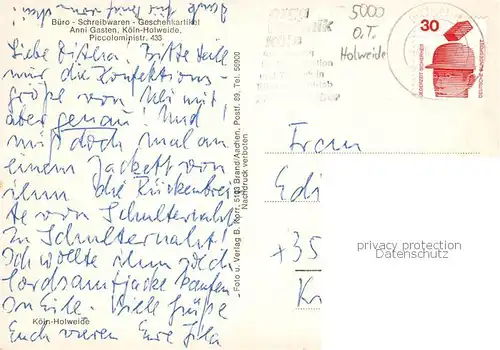 Büro - Schreibwaren - Geschenkartikel
Anni Gasten, Köln-Holweide,
Piccoloministr. 433
Bitte teile
mir die Konfektions-
größe von Uli mit
aber genau! Und
miß doch mal an
einem Jackett von
ihm die Rückenbrei
te von Schulternaht
zu Schulternaht!
Ich wollte ihm 
Cordsamtjacke kaufen
In Eile. Viele Grüße
Euch vieren Eure
Köln-Holweide
Foto u. Verlag B. Korr, 5103 Brand/Aachen, Postf. 89, Tel. 56900
Nachdruck verboten
5000
O.T.
Holweide
30
JEDERZEIT SICHERHEIT
DEUTSCHE BUNDESPOST
Frau
Edi
35
privacy protection
Datenschutz